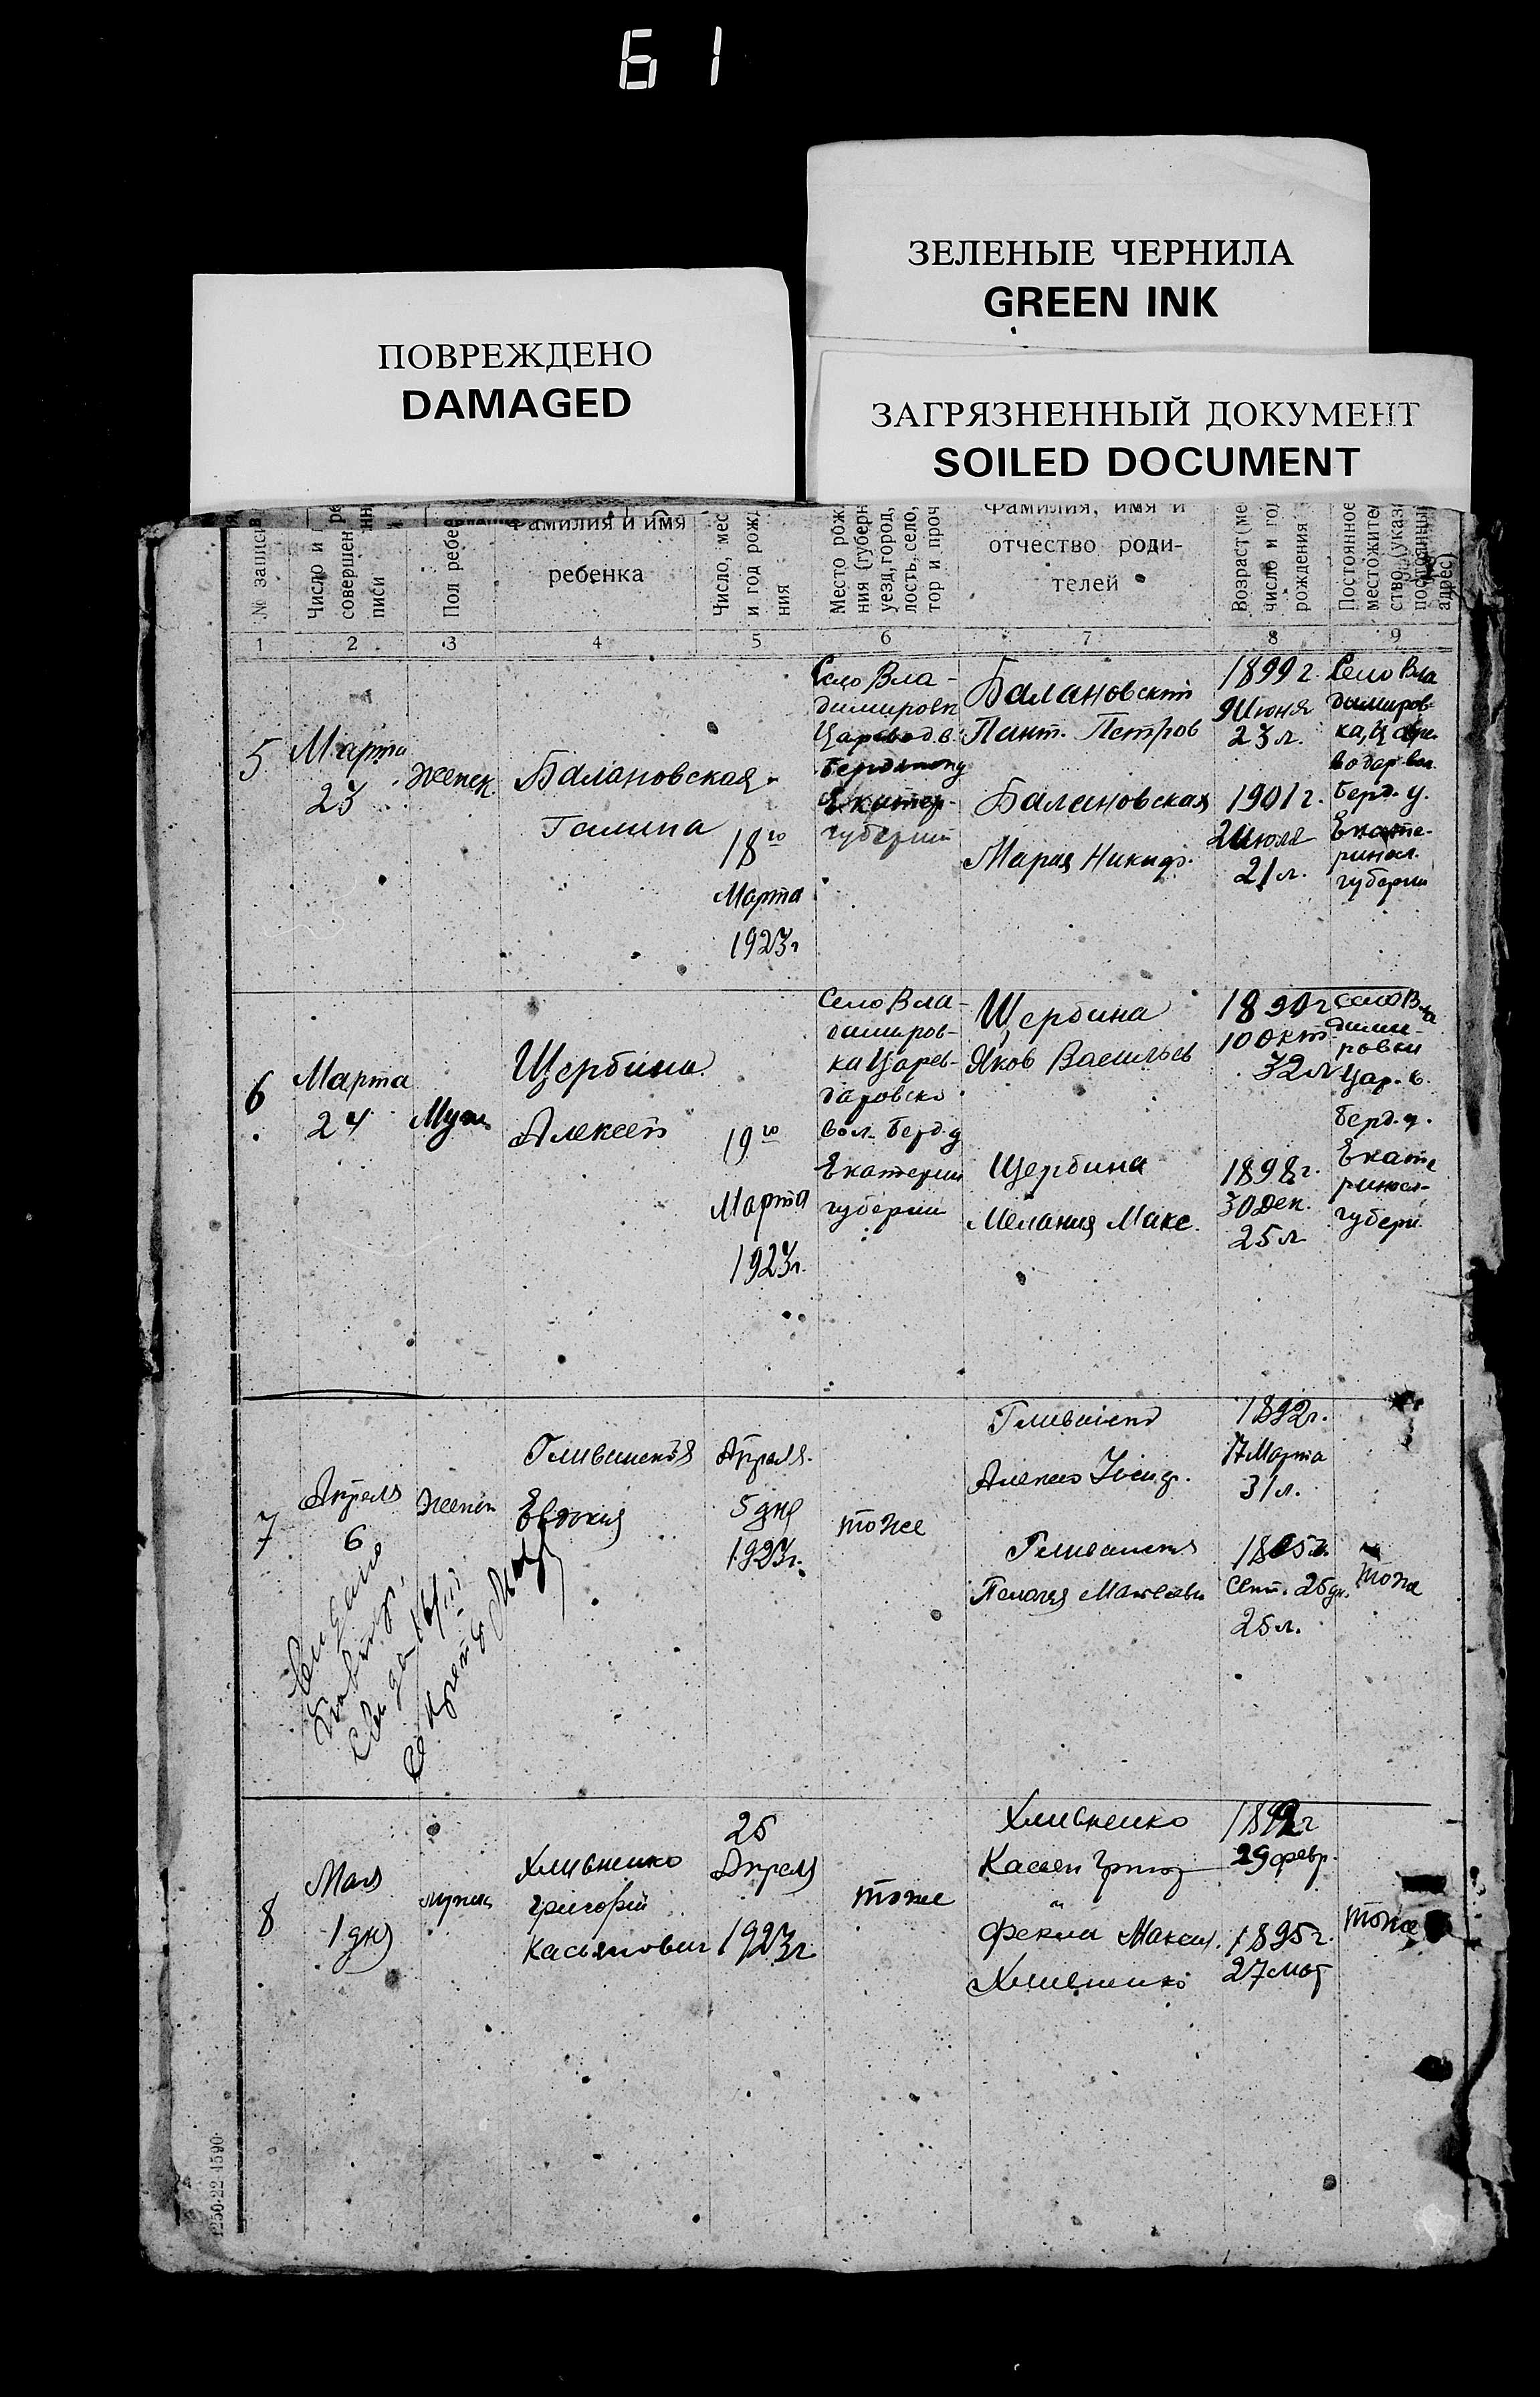 61
ЗЕЛЕНЫЕ ЧЕРНИЛА
GREEN INK
ПОВРЕЖДЕНО
DAMAGED
ЗАГРЯЗНЕННЫЙ ДОКУМЕНТ
SOILED DOCUMENT
№ записи
Число и
совершен
писи
Пол ребе
Фамилия и имя
ребенка
Число, мес
и год рожд
ния
Место рож
ния (губерн
уезд, город,
лость, село,
тор и проч
Фамилия, имя и
отчество роди-
телей
Возраст (ме
число и год
рождения
Постоянное
местожител
ство (указ
постоянный
адрес)
1 2 3 4 5 6 7 8 9
5
Марта
23
женск.
Балановская
Галина
18го
Марта
1923г
Село Вла-
димировк
Царевод.в.
Екатер.
губернии
Балановский
Пант. Петров
Балановская
Мария Никиф.
1899 г.
9 Июня
23 л.
1901 г.
2 Июля
21 л.
Село Вла
димиров-
ка, Царе-
водар вол.
Берд. у.
Екате-
ринос.
губерни
6
Марта
24
Муж
Щербина
Алексей
19го
Марта
1923г.
Село Вла-
димиров-
ка Царев-
даровско
вол. Берд. у
Екатерин
губернии
Щербина
Яков Васильев
Щербина
Мелания Макс.
1890 г
10 окт
32 л
1898 г.
30 Дек.
25 л
Село Вла
дими-
ровки
Цар. в.
Берд. у.
Екате
ринос-
губерн
7
Апреля
6
женск
Евдокия
Апреля
5 дня
1923г.
тоже
1892 г.
17 Марта
31 л.
Сент. 25 дн.
25 л.
тоже
8
Мая
1 дня
мужск
Хливненко
Григорий
Касьянович
25
Апреля
1923г
тоже
Хливненко
Касьян Григ
Фекла Максим.
Хливненко
29 февр.
1895 г.
27 мая
тоже
1250-22-4590